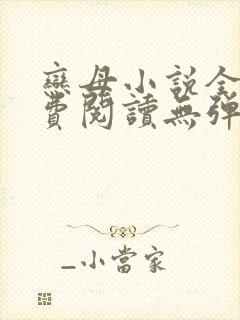 戀母小説全
費閱讀無彈
_小當家